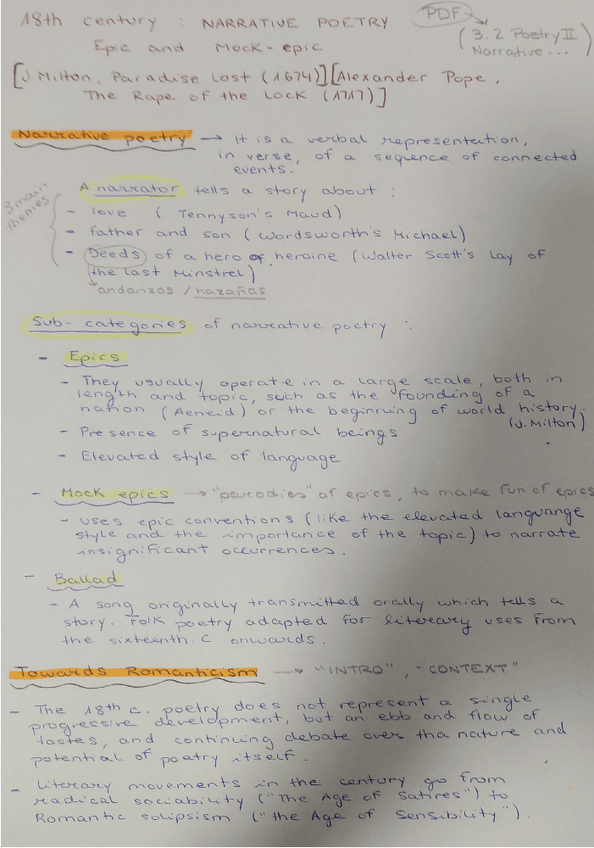 18th century : NARRATIVE POETRY
PDF
(3.2 Poetry II
Narrative...
Epic and Mock-epic
[J Milton, Paradise Lost (1674)] [Alexander Pope,
The Rape of the Lock (1717)]
Narrative poetry → It is a verbal representation,
in verse, of a sequence of connected
events.
A narrator tells a story about :
3 main
themes
- love ( Tennyson's Maud)
- father and son ( Wordsworth's Michael)
- Deeds of a hero or heroine (Walter Scott's Lay of
the Last Minstrel)
andanzas / hazañas
Sub-categories of narrative poetry :
- Epics
- They usually operate in a large scale, both in
length and topic, such as the founding of a
nation (Aeneid) or the beginning of world history.
(J. Milton)
- Presence of supernatural beings
- Elevated style of language
- Mock epics → "parodies" of epics, to make fun of epics
- uses epic conventions (like the elevated languange
style and the importance of the topic) to narrate
insignificant occurrences.
- Ballad
- A song originally transmitted orally which tells a
story. Folk poetry adapted for literary uses from
the sixteenth.C onwards.
Towards Romanticism → "INTRO", "CONTEXT"
- The 18th c. poetry does not represent a single
progressive development, but an ebb and flow of
tastes, and continuing debate over tha nature and
potential of poetry itself.
- Literary movements in the century go from
radical sociability ("The Age of Satires") to
Romantic solipsism ("the Age of Sensibility").